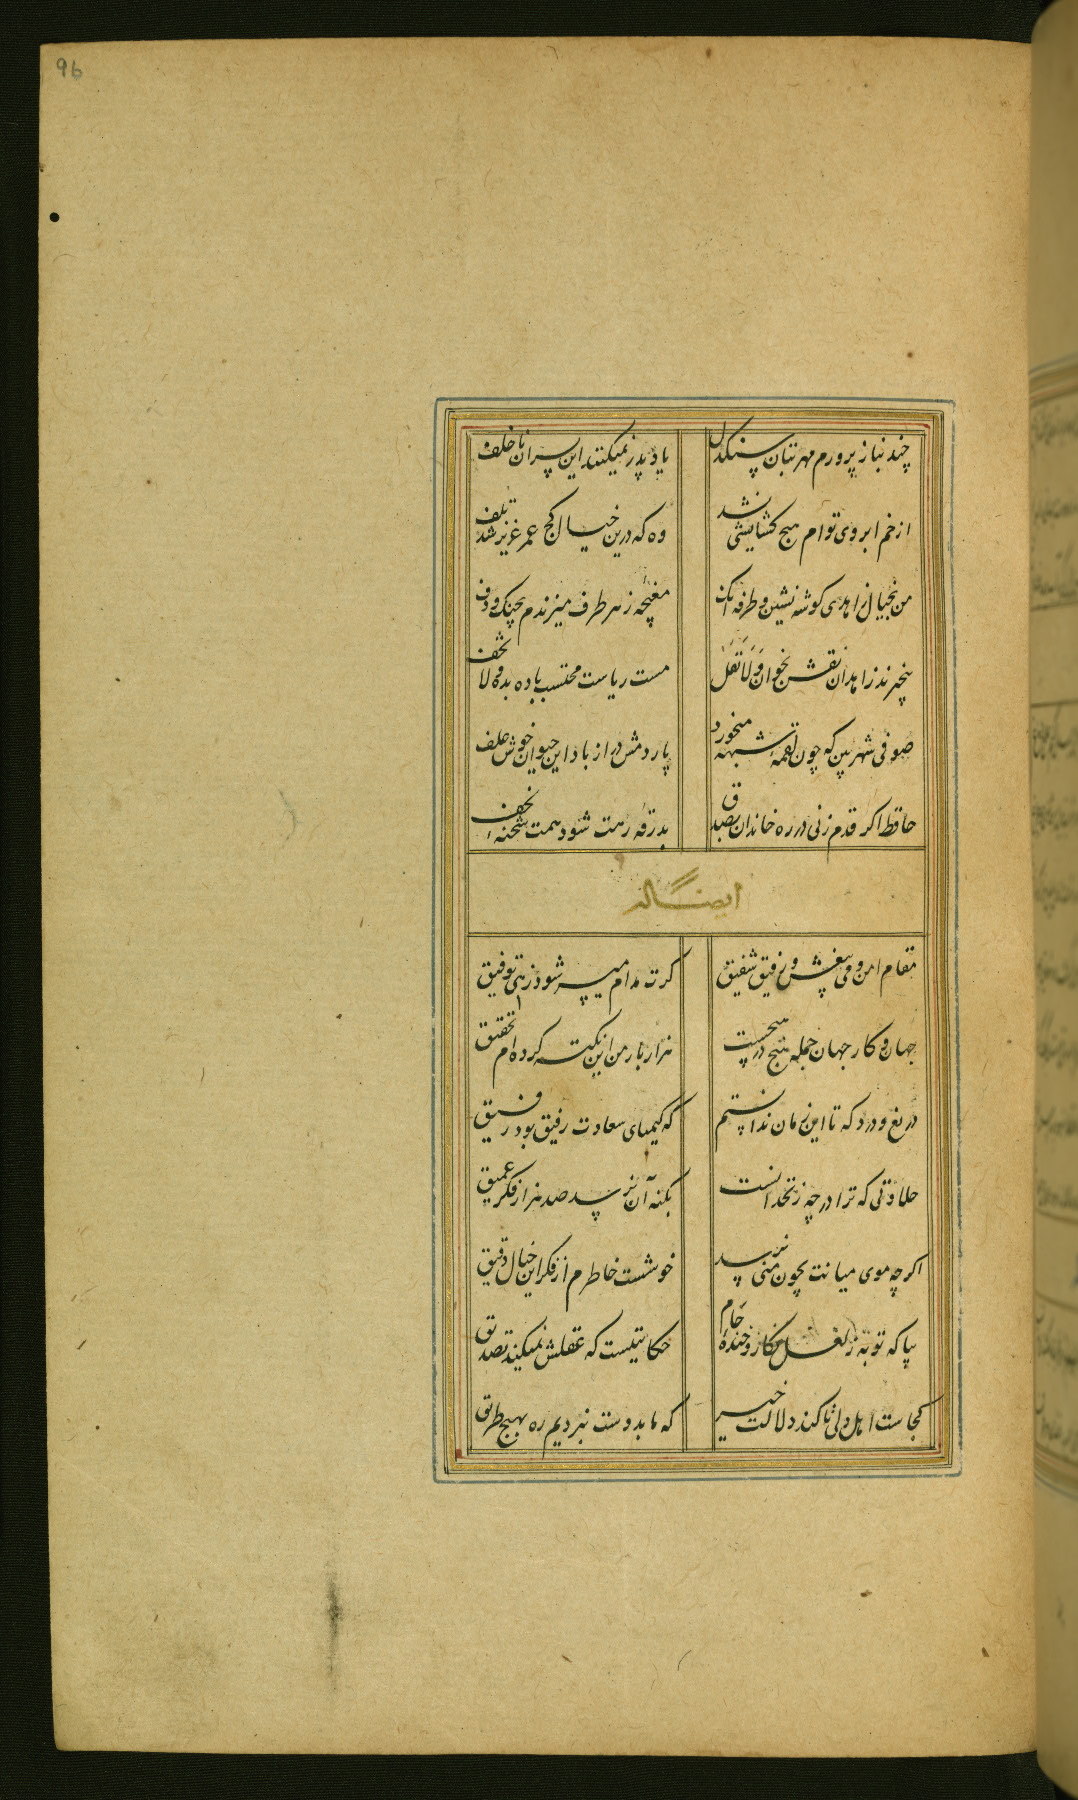 96
چند بناز پرورم مهر بتان سنکدل یاد پدر نمیکنند این پسران ناخلف
از خم ابروی توام هیچ کشایشی نشد وه که درین خیال کج عمر عزیز شد تلف
من بخیال زاهدی کوشه نشین و طرفه آنک مغبچه ز هر طرف میزندم بچنک و دف
بیخبرند زاهدان نقش بخوان وَلَا تَقُلْ مست ریاست محتسب باده بده ولا تخف
صوفی شهر بین که چون لقمهٔ شبهه میخورد پاردمش دراز باد این حیوان خوش علف
حافظ اکر قدم زنی در ره خاندان بصدق بدرقه رهت شود همت شحنه نجف
ایضا له
مقام امن و می بیغش و رفیق شفیق کرت مدام میسر شود زهی توفیق
جهان و کار جهان جمله هیچ در هیچست هزار بار من این نکته کرده ام تحقیق
دریغ و درد که تا این زمان ندانستم که کیمیای سعادت رفیق بود رفیق
حلاوتی که ترا در چه زنخدانست بکنه آن نرسد صد هزار فکر عمیق
اکرچه موی میانت بچون منی نرسد خوشست خاطرم از فکر این خیال دقیق
بیا که توبه ز لعل نکار و خندهٔ جام حکایتیست که عقلش نمیکند تصدیق
کجاست اهل دلی تا کند دلالت خیر که ما بدوست نبردیم ره بهیچ طریق